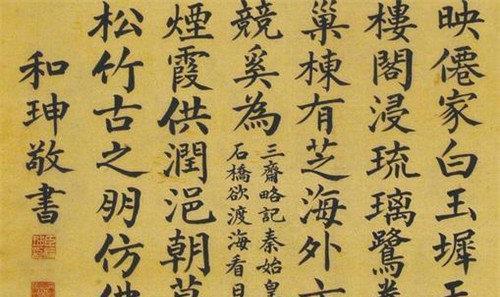 映僊家白玉墀
樓閣浸琉璃鷺
巢棟有芝海外
競奚為
三齋略記秦始皇
石橋欲渡海看日
煙霞供潤浥朝
松竹古之朋仿佛
和珅敬書